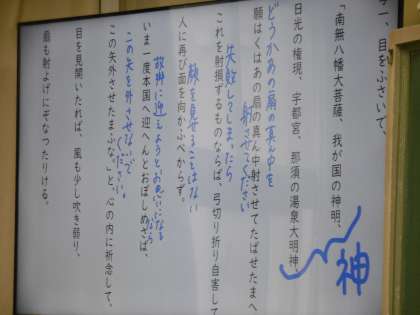 与一、目をふさいで、
「南無八幡大菩薩、我が国の神明、
神
日光の権現、宇都宮、那須の湯泉大明神
どうかあの扇の真ん中を
射させてください
願はくはあの扇の真ん中射させてたばせたまへ
失敗してしまったら
これを射損ずるものならば、弓切り折り自害して
顔を見せることはない
人に再び面を向かふべからず。
故郷に迎えようとお思いになる
なら
いま一度本国へ迎へんとおぼしめさば、
この矢を外させないで
ください
この矢外させたまふな。」と、心の内に祈念して、
目を見開いたれば、風も少し吹き弱り、
扇も射よげにぞなつたりける。